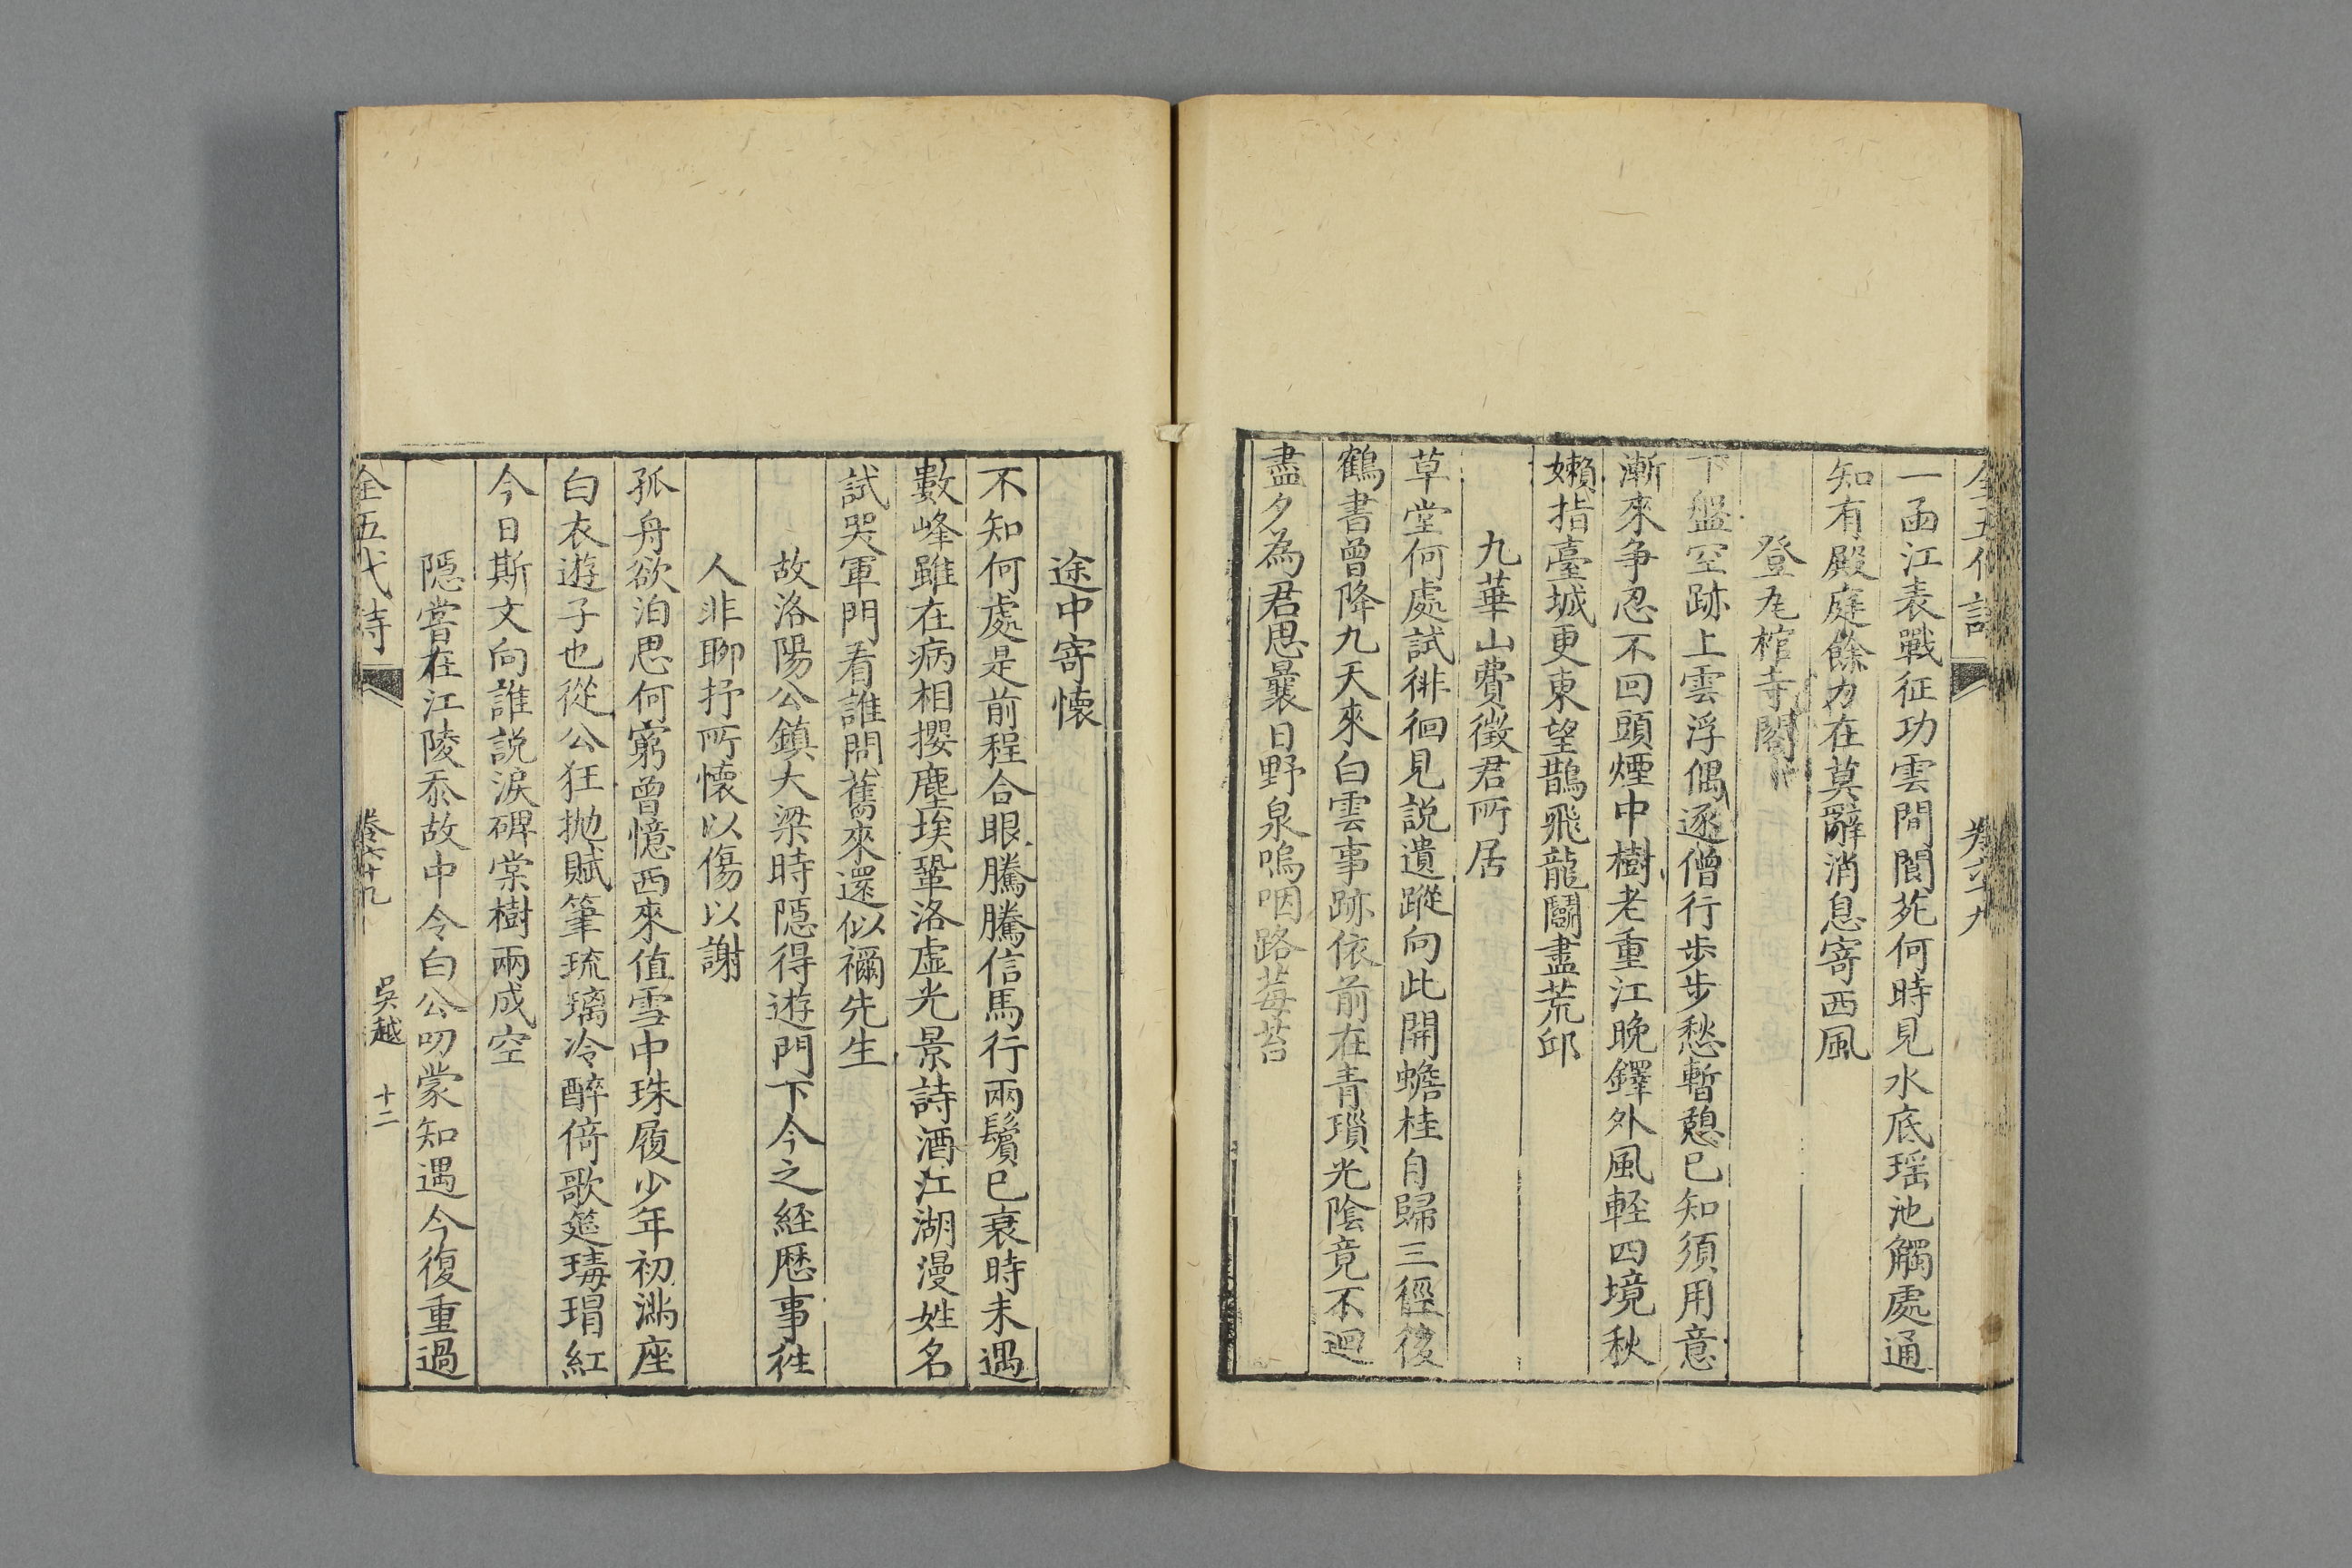 全五代詩 卷六十九
一函江表戰征功雲間閬苑何時見水底瑶池觸處通
知有殿庭餘力在莫辭消息寄西風
登瓦棺寺閣
下盤空跡上雲浮偶逐僧行步步愁暫憩已知須用意
漸來争忍不回頭煙中樹老重江晚鐸外風輕四境秋
嬾指臺城更東望鵲飛龍鬭盡荒邱
九華山費徵君所居
草堂何處試徘徊見説遺蹤向此開蟾桂自歸三徑後
鶴書曾降九天來白雲事跡依前在青瑣光陰竟不迴
盡夕為君思曩日野泉嗚咽路莓苔
途中寄懷
不知何處是前程合眼騰騰信馬行兩鬢已衰時未遇
數峰雖在病相攖塵埃鞏洛虛光景詩酒江湖漫姓名
試哭軍門看誰問舊來還似禰先生
故洛陽公鎮大梁時隱得遊門下今之經歷事往
人非聊抒所懷以傷以謝
孤舟欲泊思何窮曾憶西來值雪中珠履少年初滿座
白衣遊子也從公狂拋賦筆琉璃冷醉倚歌筵瑇瑁紅
今日斯文向誰説淚碑棠樹兩成空
隱嘗在江陵忝故中令白公叨蒙知遇今復重過
全五代詩 卷六十九 吳越 十二